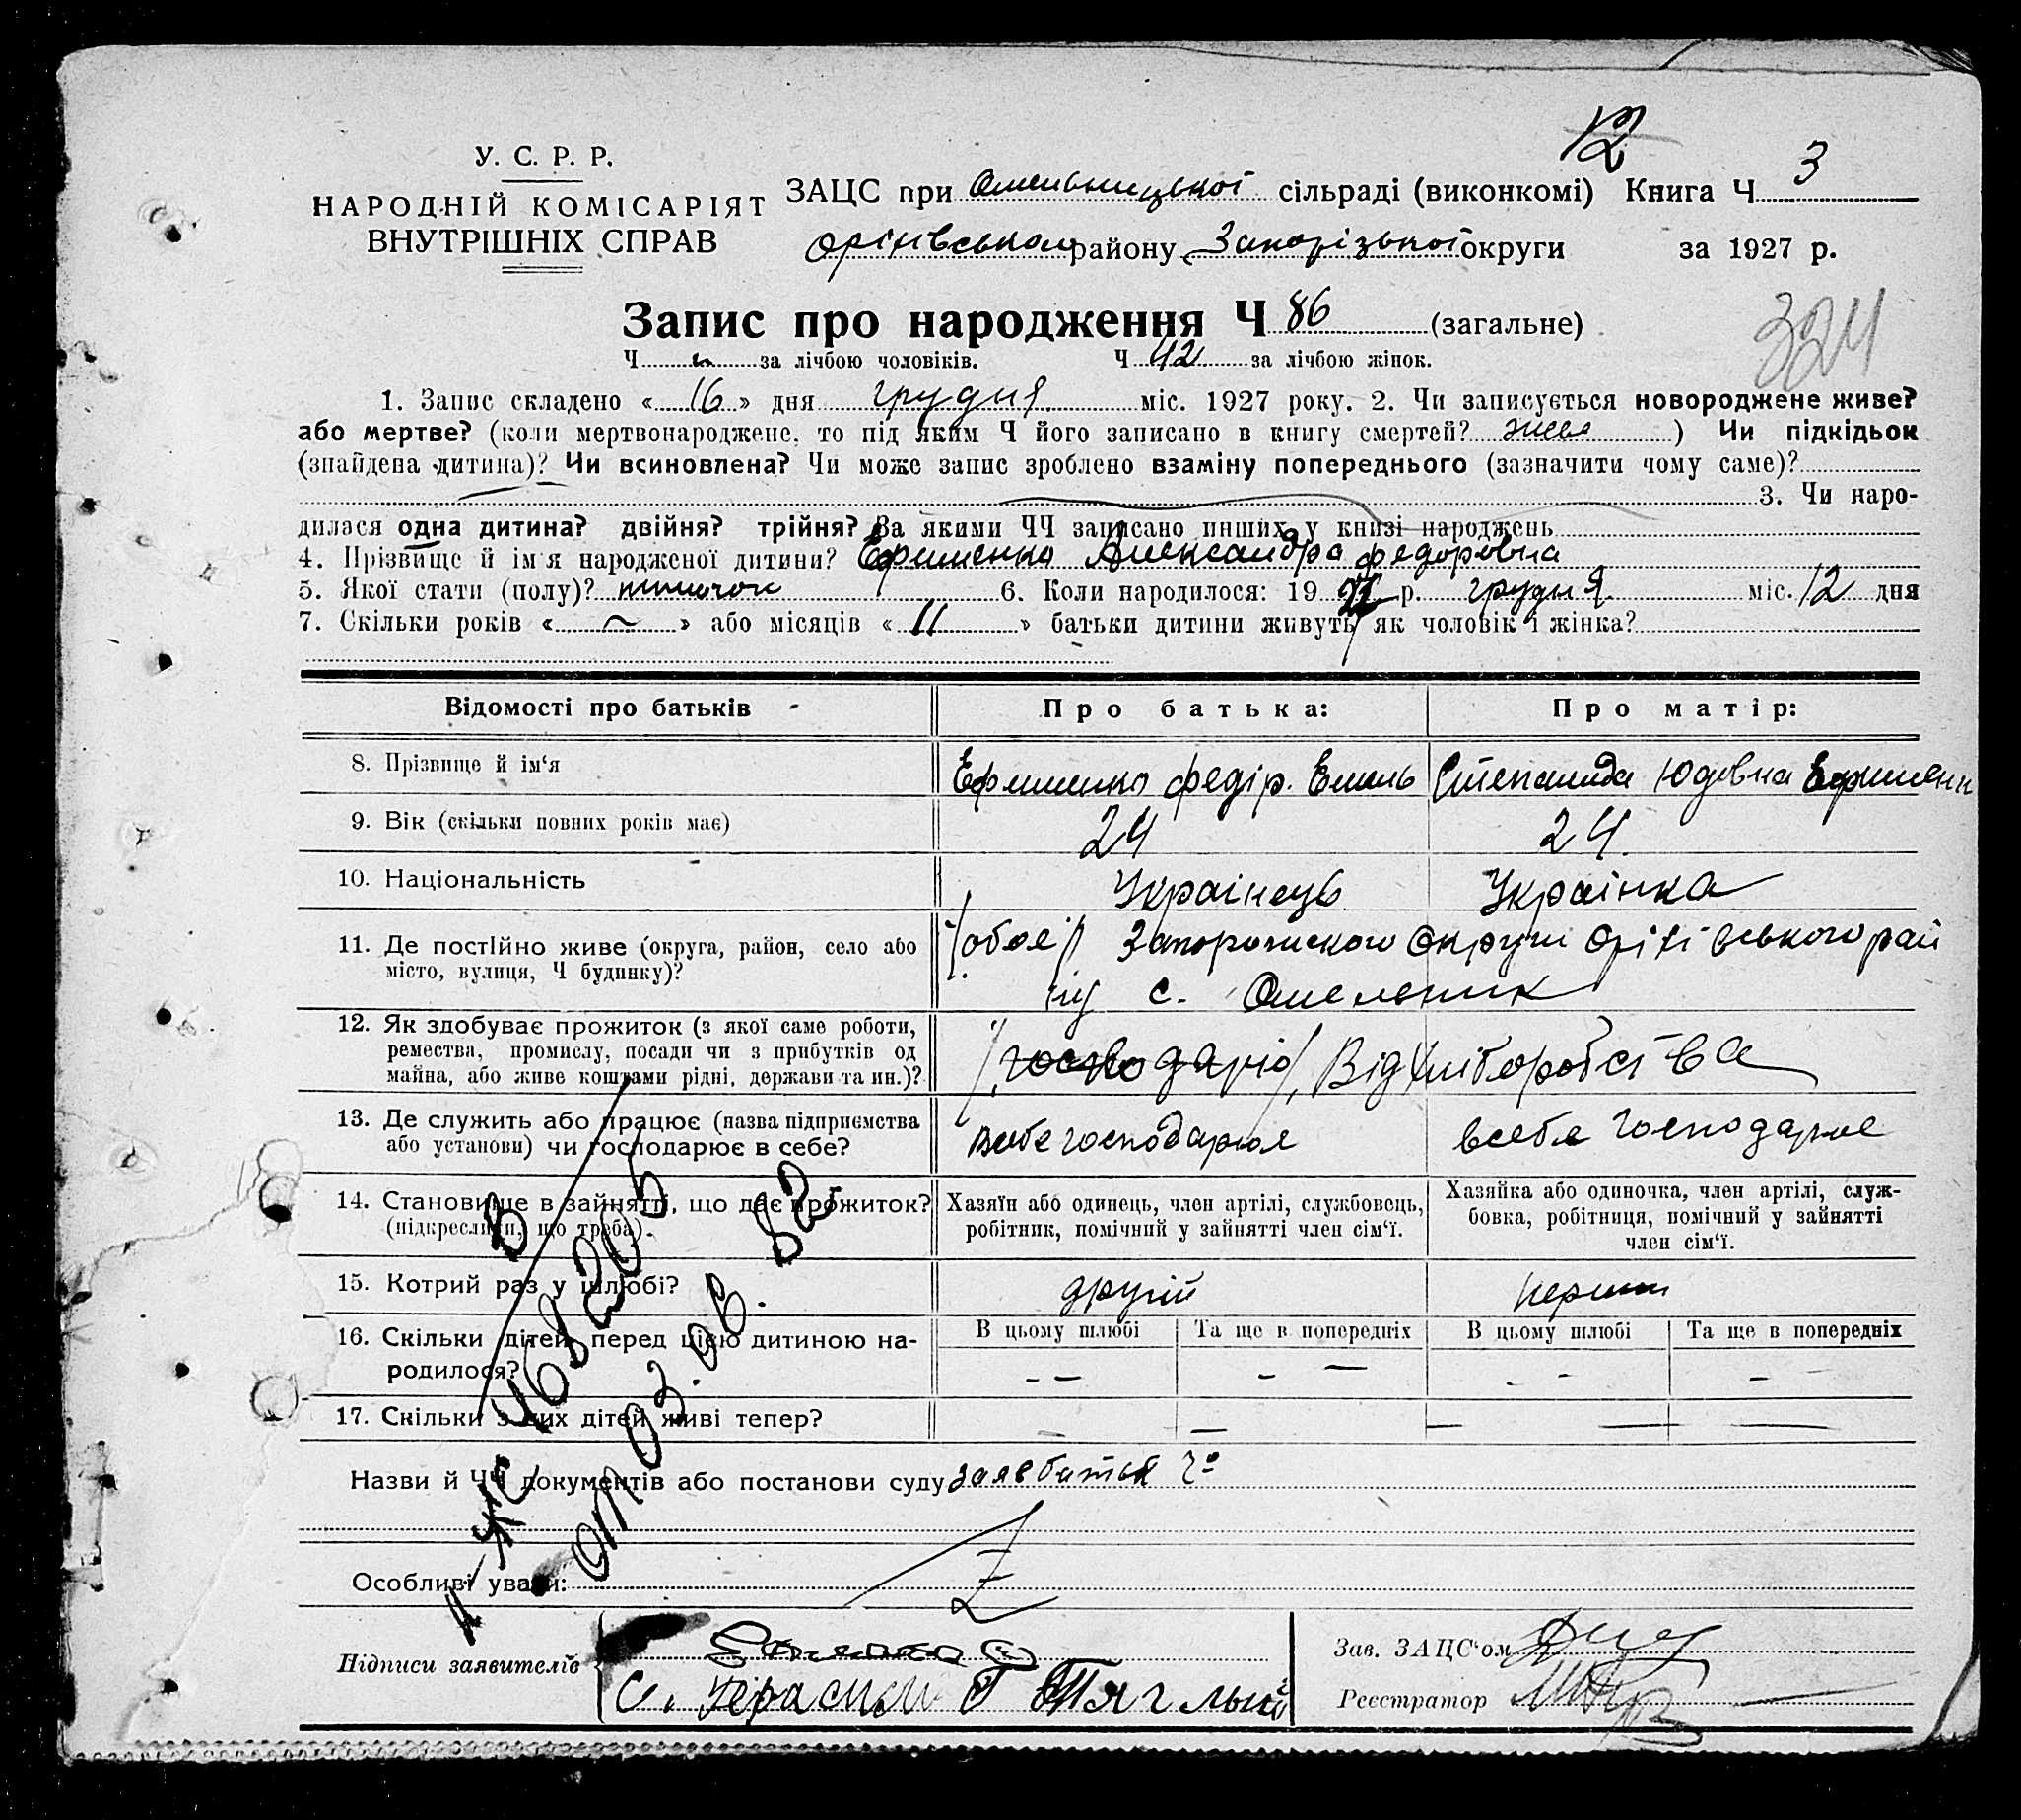 12
У. С. Р. Р.
НАРОДНІЙ КОМІСАРІЯТ
ВНУТРІШНІХ СПРАВ
ЗАЦС при Омельницької сільраді (виконкомі) Книга Ч 3
Оріхівському району Запорізької округи за 1927 р.
Запис про народження Ч 86 (загальне)
324
Ч за лічбою чоловіків. Ч 42 за лічбою жінок.
1. Запис складено « 16 » дня грудня міс. 1927 року. 2. Чи записується новороджене живе?
або мертве? (коли мертвонароджене, то під яким Ч його записано в книгу смертей? живе ) Чи підкідьок
(знайдена дитина)? Чи всиновлена? Чи може запис зроблено взаміну попереднього (зазначити чому саме)?
3. Чи наро-
дилася одна дитина? двійня? трійня? За якими ЧЧ записано инших у книзі народжень
4. Прізвище й ім'я народженої дитини? Ефименко Александра Федоровна
5. Якої стати (полу)? жіночої 6. Коли народилося: 19 27 р. грудня міс. 12 дня
7. Скільки років « ~ » або місяців « 11 » батьки дитини живуть як чоловік і жінка?
Відомості про батьків Про батька: Про матір:
8. Прізвище й ім‘я Ефименко Федір. Емель Степанида Юдовна Ефименк
9. Вік (скільки повних років має) 24 24.
10. Національність Украінець Украінка
11. Де постійно живе (округа, район, село або /обоє/ Запорожского Округи Оріхівського рай
місто, вулиця, Ч будинку)? ну с. Омельник
12. Як здобуває прожиток (з якої саме роботи,
ремества, промислу, посади чи з прибутків од /господарю/, Від хліборобства
майна, або живе коштами рідні, держави та ин.)?
13. Де служить або працює (назва підприємства
або установи) чи господарює в себе? всебе господарює всебе господарює
14. Становище в зайнятті, що дає прожиток? Хазяїн або одинець, член артілі, службовець, Хазяйка або одиночка, член артілі, служ-
(підкреслити, що треба). робітник, помічний у зайнятті член сім‘ї. бовка, робітниця, помічний у зайнятті
член сім‘ї.
15. Котрий раз у шлюбі? другий перший
16. Скільки дітей перед цією дитиною на- В цьому шлюбі Та ще в попередніх В цьому шлюбі Та ще в попередніх
родилося? - — - — - - -
17. Скільки з них дітей живі тепер? — — — — —
Назви й ЧЧ документів або постанови суду заяв батька
Особливі уваги: Z
В
1-ЖС 468205
от 03.08.82
Підписи заявителів
с. Герасим Г Тяглий
Зав. ЗАЦС‘ом
Реєстратор